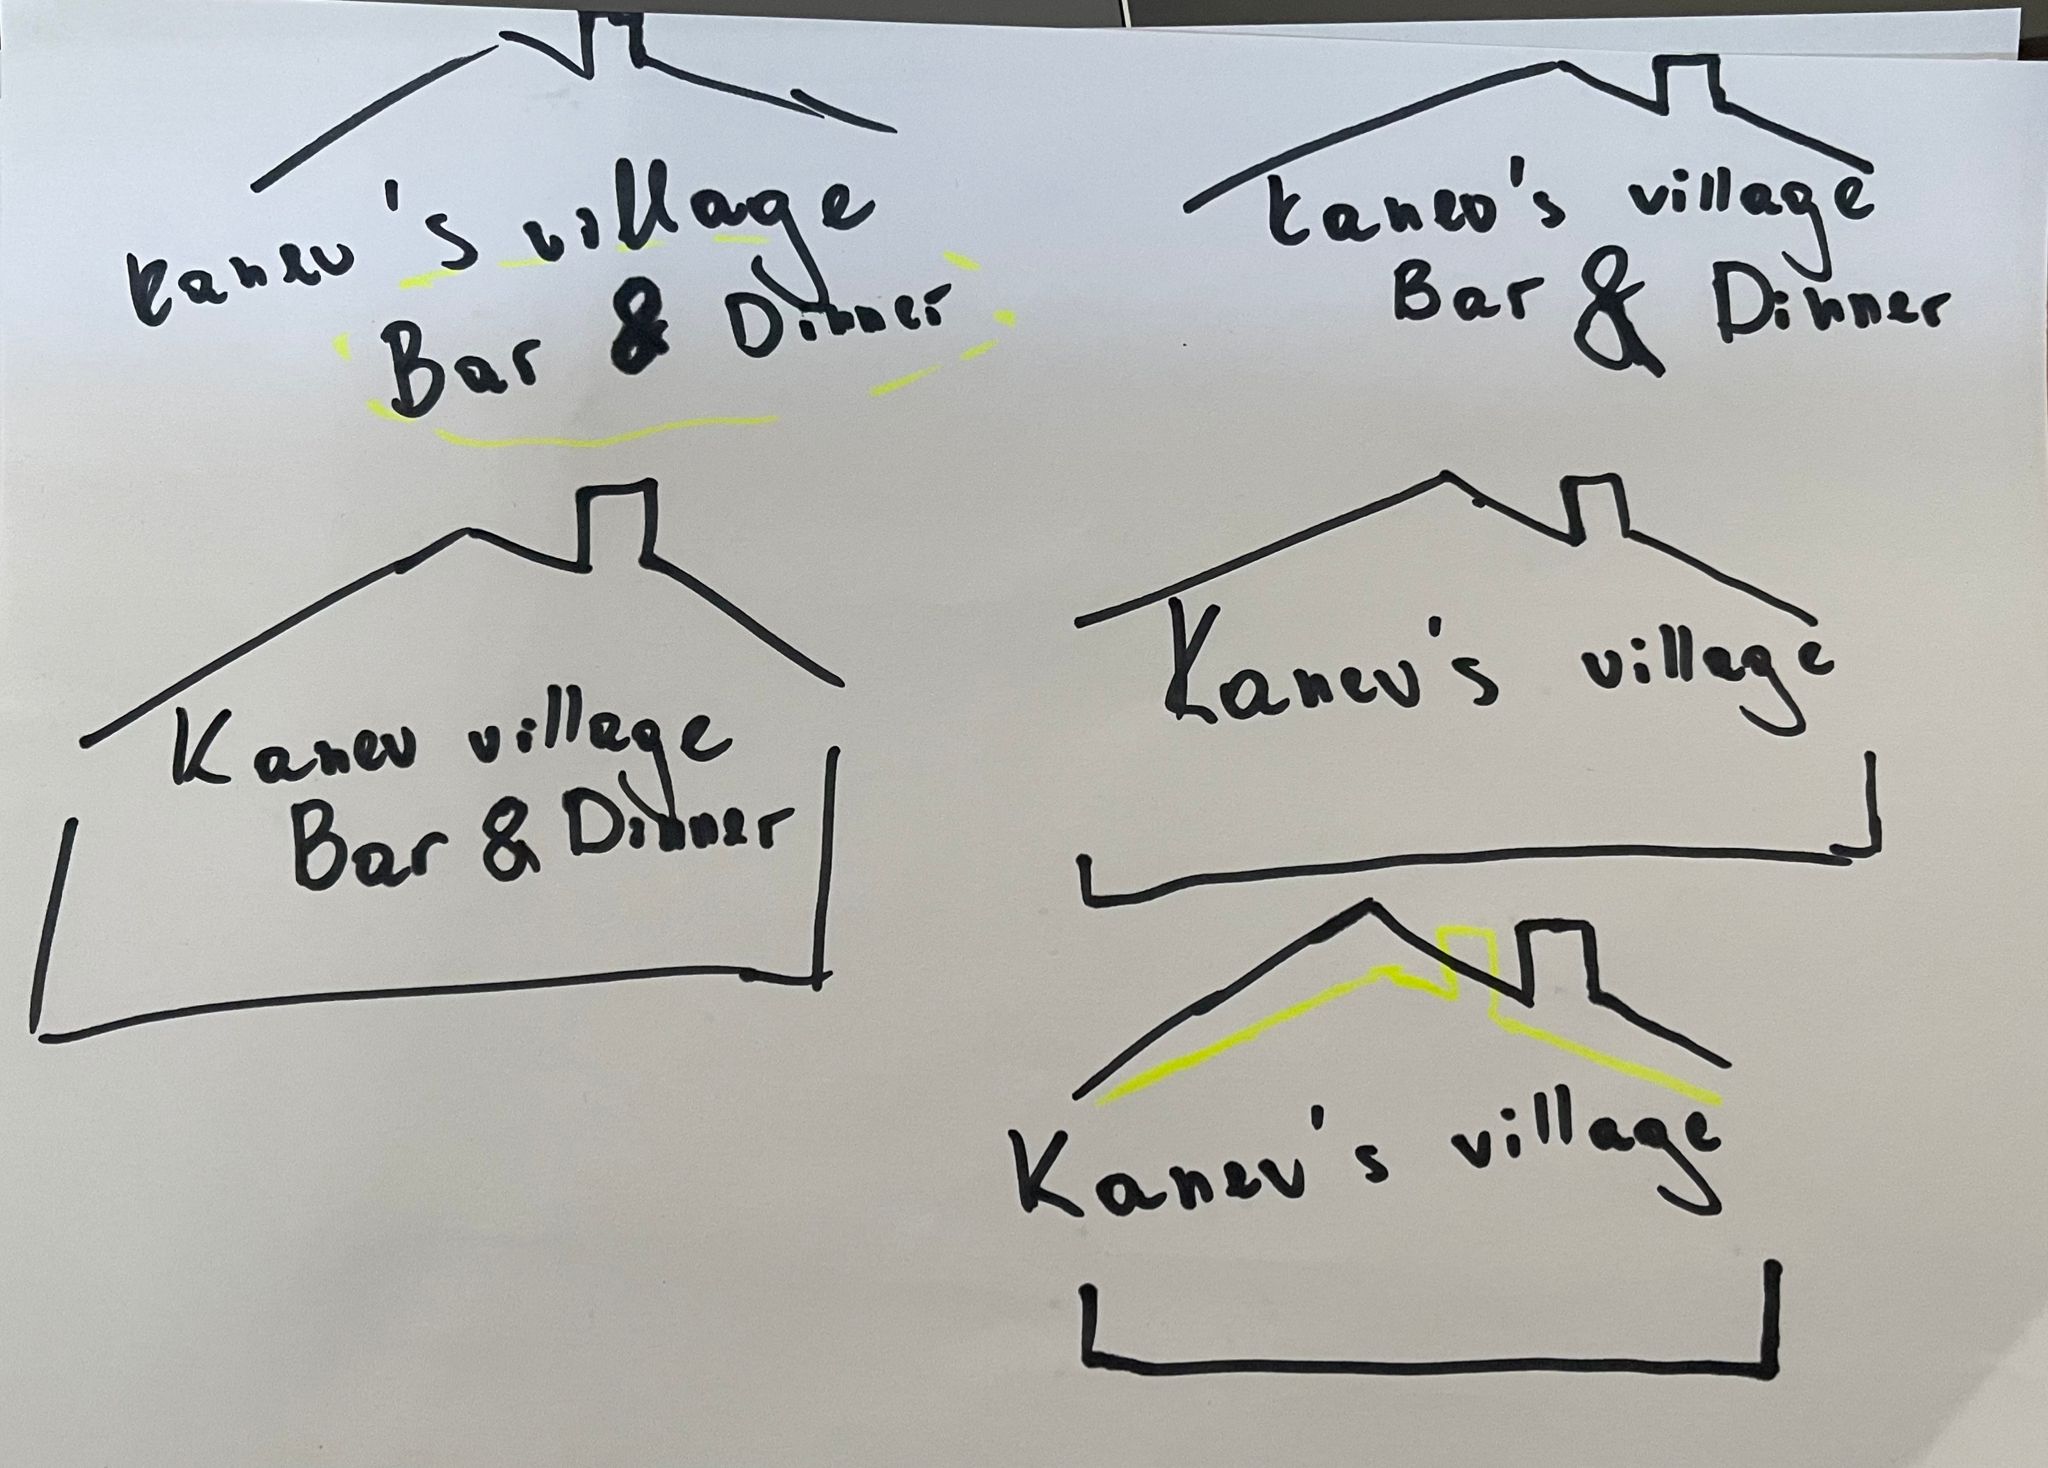 Kanev's village
Bar & Dinner
Kanev's village
Bar & Dinner
Kanev village
Bar & Dinner
Kanev's village
Kanev's village